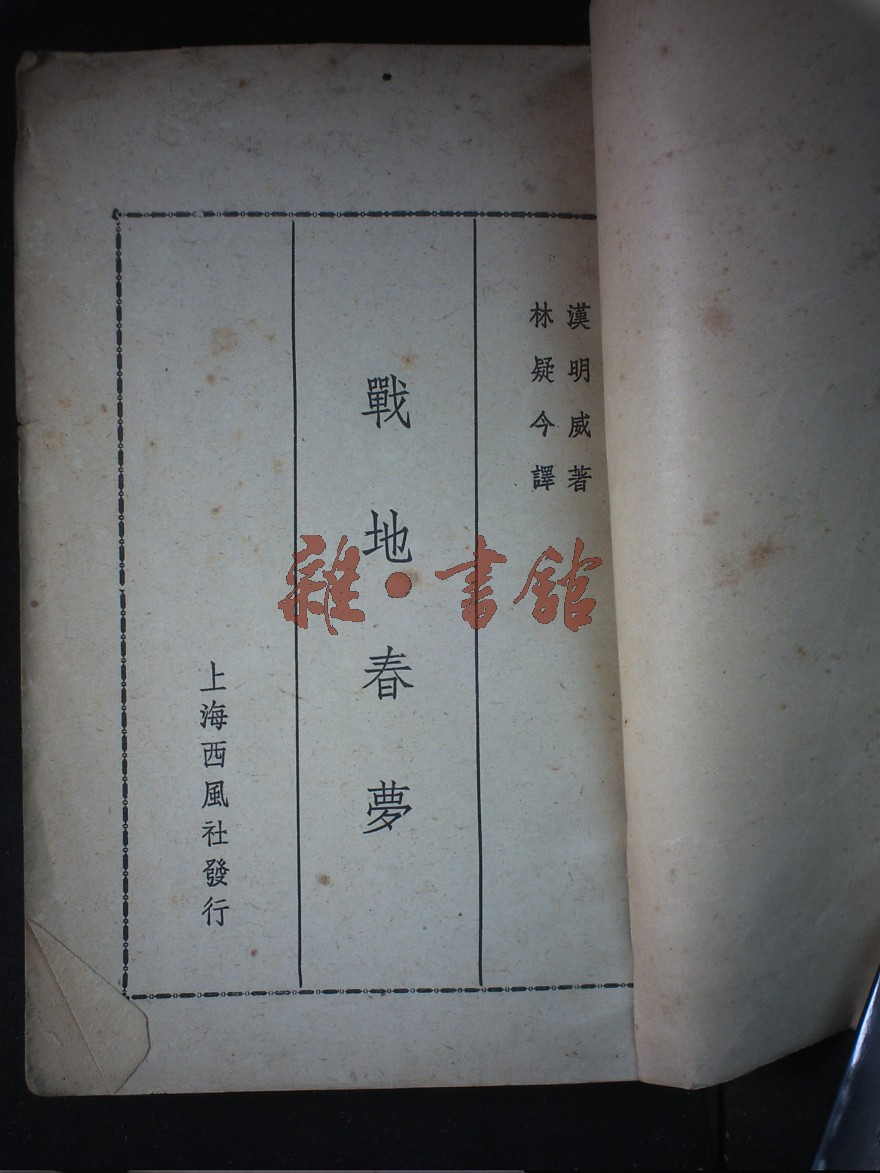 漢明威著
林疑今譯
戰地春夢
上海西風社發行
雜·書館